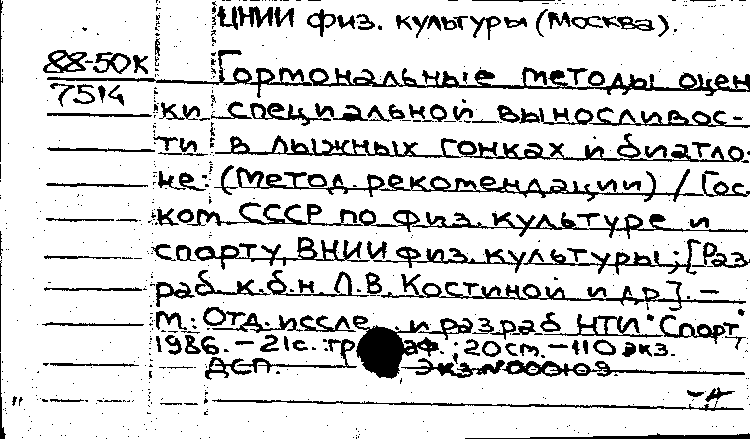 ЦНИИ физ. культуры (Москва).
88-50К
7514
Гормональные методы оцен
ки специальной выносливос-
ти в лыжных гонках и биатло-
не: (Метод. рекомендации) / Гос
ком СССР по физ. культуре и
спорту, ВНИИ физ. культуры; [Раз
раб. к.б.н. Л.В. Костиной и др]. -
М.: Отд. иссле и разраб НТИ "Спорт,"
1986. - 21с. : ; 20 см. - 110 экз.
ДСП. Экз. № 000109.